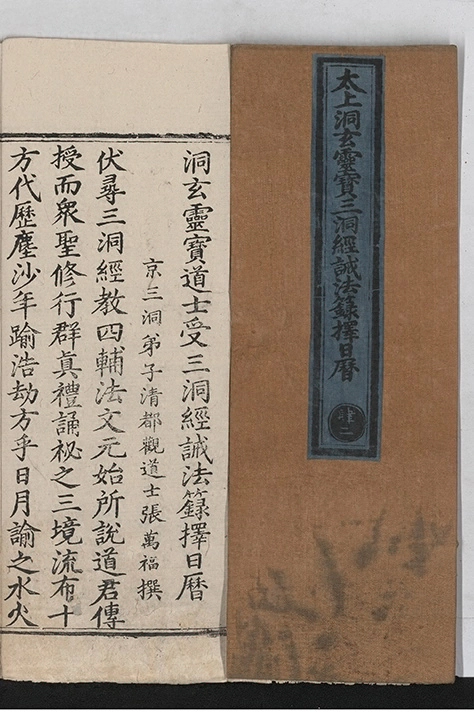 太上洞玄靈寶三洞經誡法籙擇日曆
肆二
洞玄靈寶道士受三洞經誡法籙擇日曆
京三洞弟子清都觀道士張萬福撰
伏尋三洞經教四輔法文元始所說道君傳
授而衆聖修行群真禮誦祕之三境流布十
方代歷塵沙年踰浩劫方乎日月諭之水火